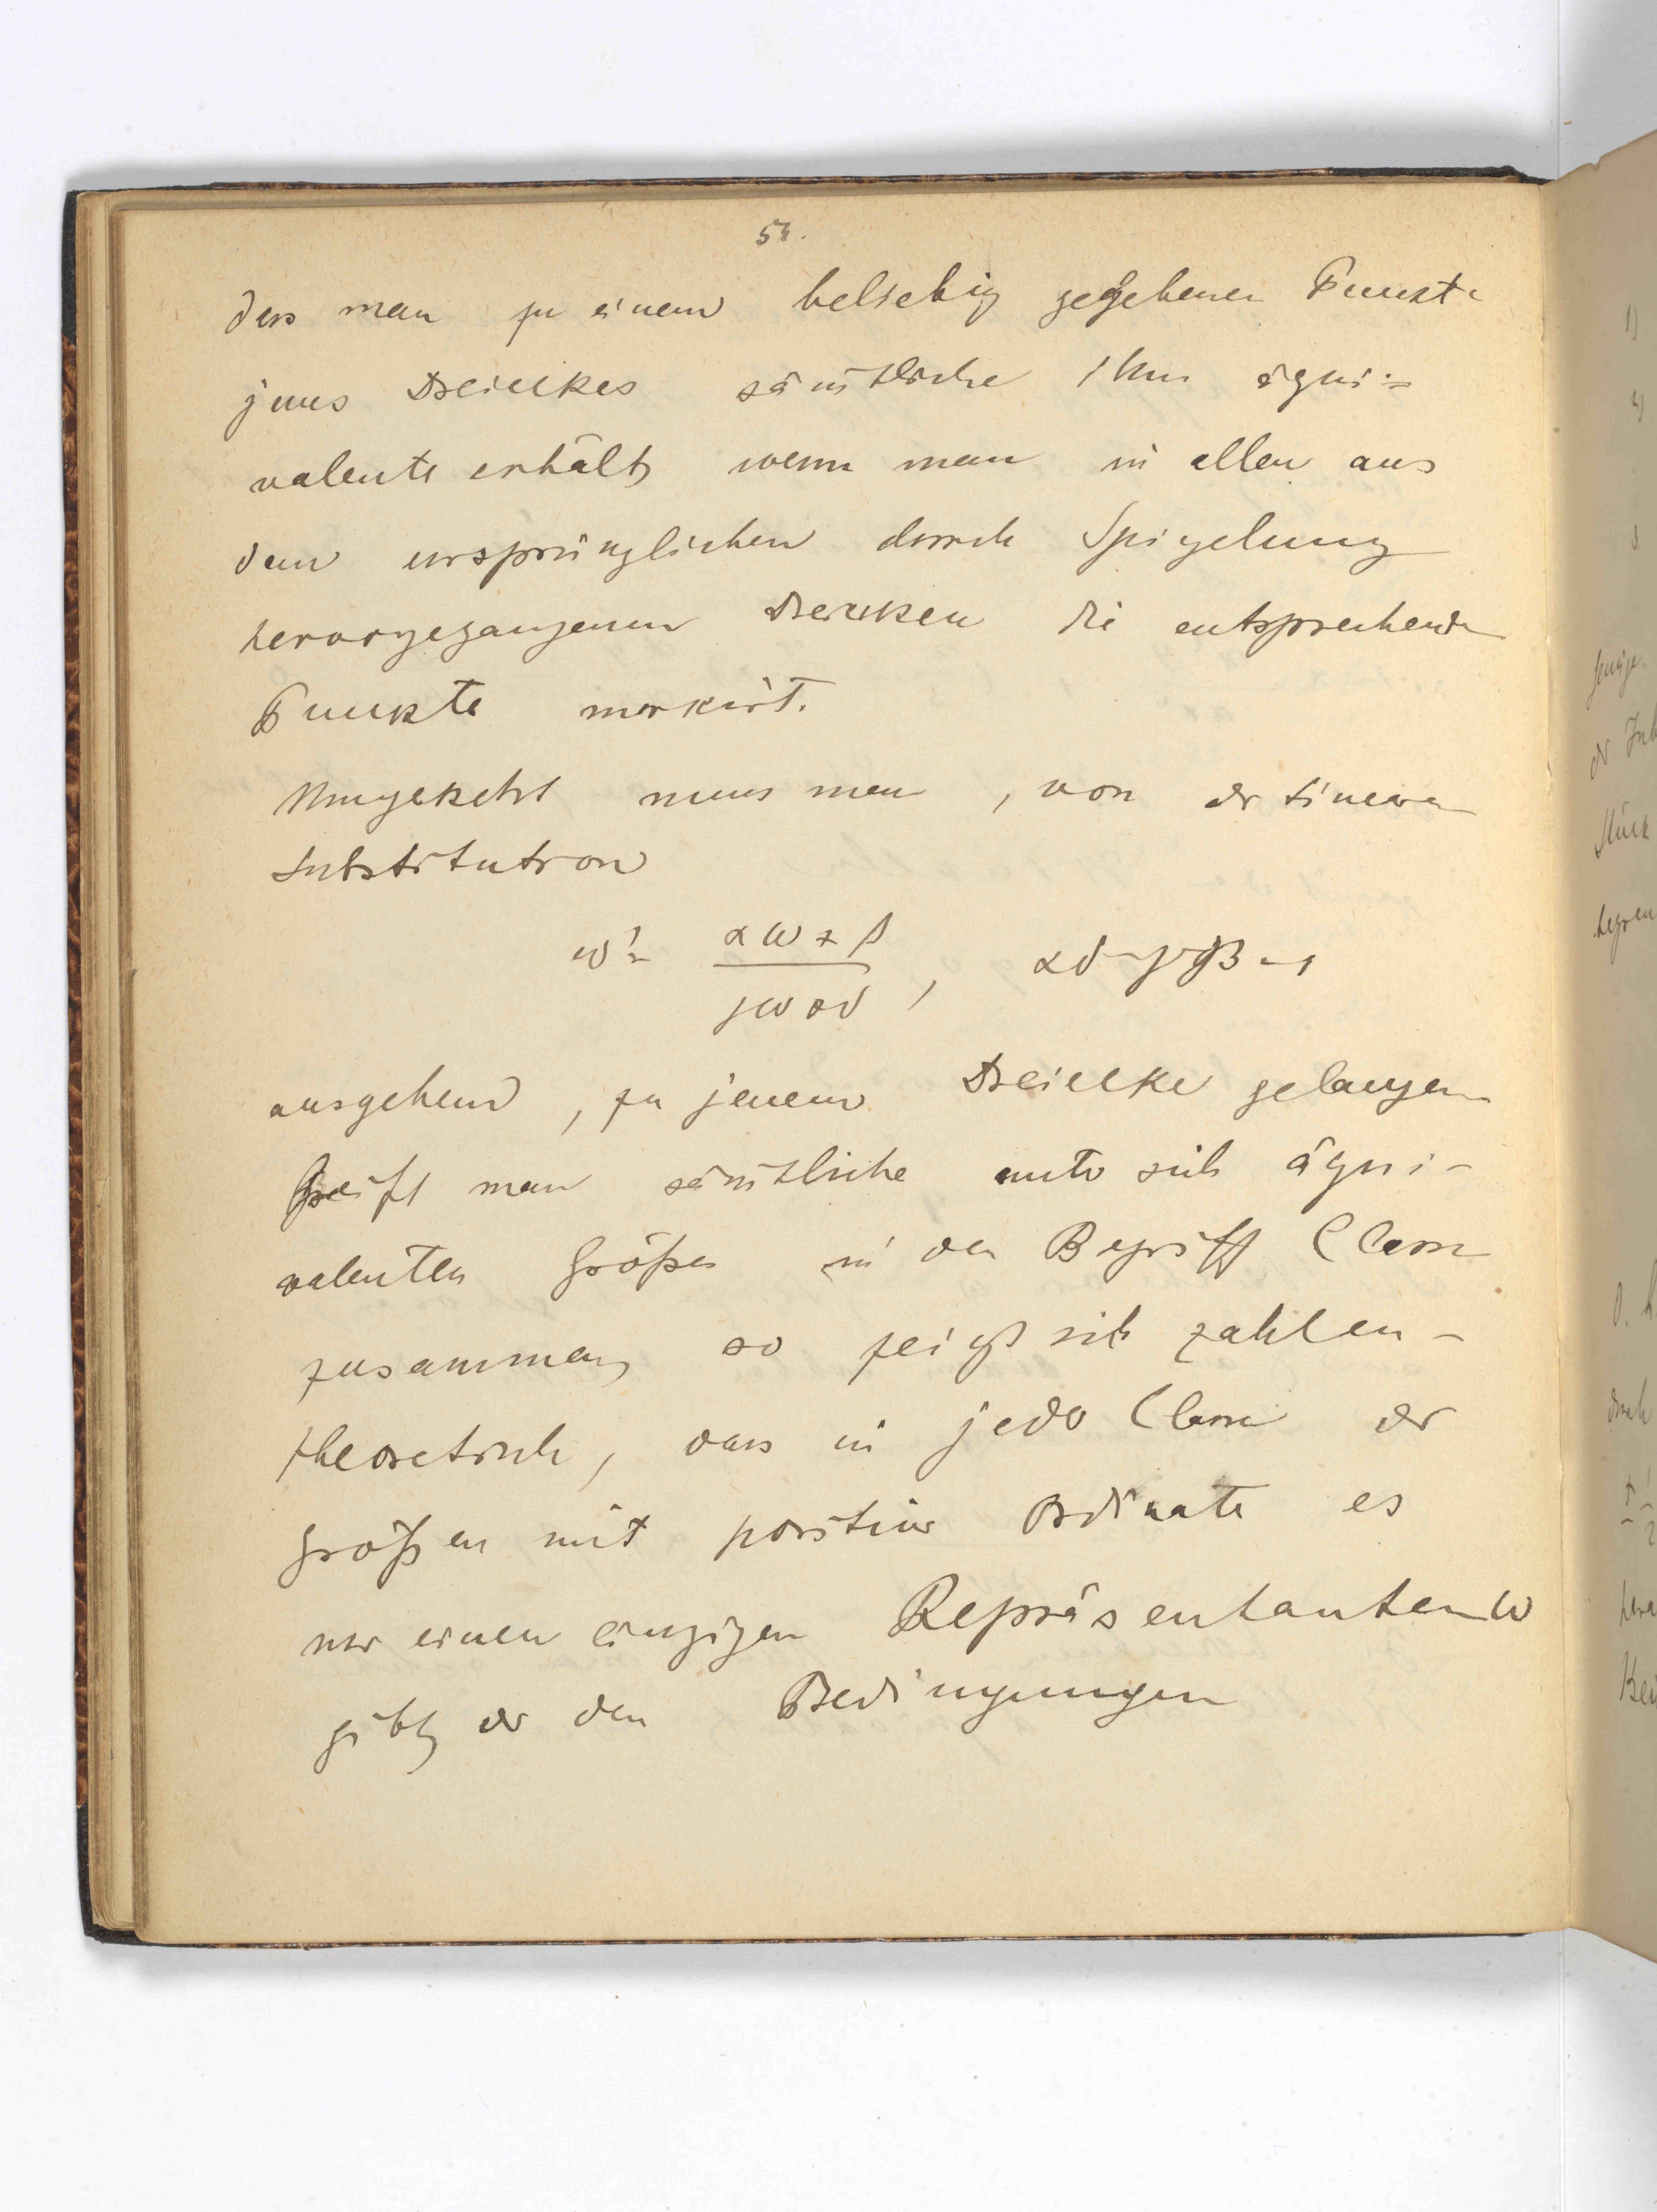 54.
dass man zu einem beliebig gegebenen Punkte
jenes Dreieckes sämtliche ihm äqui=
valente erhält, wenn man in allen aus
dem ursprünglichen durch Spiegelung
hervorgegangenen Dreiecken die entsprechenden
Punkte markirt.
Umgekehrt muss man, von der linearen
Substitution
ω' = (αω + β) / (γω + δ), αδ - γβ = 1
ausgehend, zu jenem Dreiecke gelangen
Greift man sämtliche unter sich äqui-
valenten Größen in den Begriff Classe
zusammen, so zeigt sich zahlen-
theoretisch, dass in jeder Classe der
Größen mit positiver Ordinate es
nur einen einzigen Repräsentanten ω
gibt, der den Bedingungen